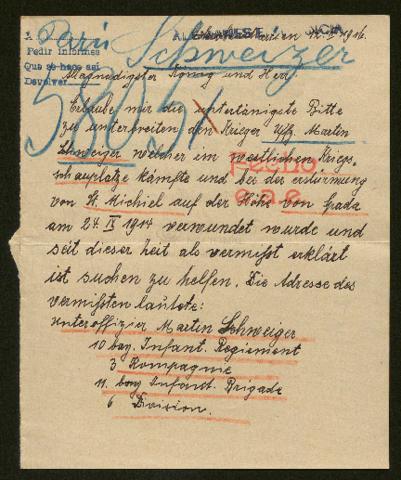 Paris
Schweizer
Pedir informes
Que se hace así
Devolver
1916.
Allergnädigster König und Herr
Erlaube mir die untertänigste Bitte
zu unterbreiten den Krieger Uffz. Martin
Schweizer welcher im westlichen Kriegs-
schauplatze kämpfte und bei der erstürmung
von St. Michiel auf der Höhe von Spada
am 24. IX 1914 verwundet wurde und
seit dieser Zeit als vermißt erklärt
ist suchen zu helfen. Die Adresse des
vermißten lautete:
Unteroffizier Martin Schweizer
10 bay. Infant. Regiement
3 Kompagnie
11. bay Infant. Brigade
6 Division.